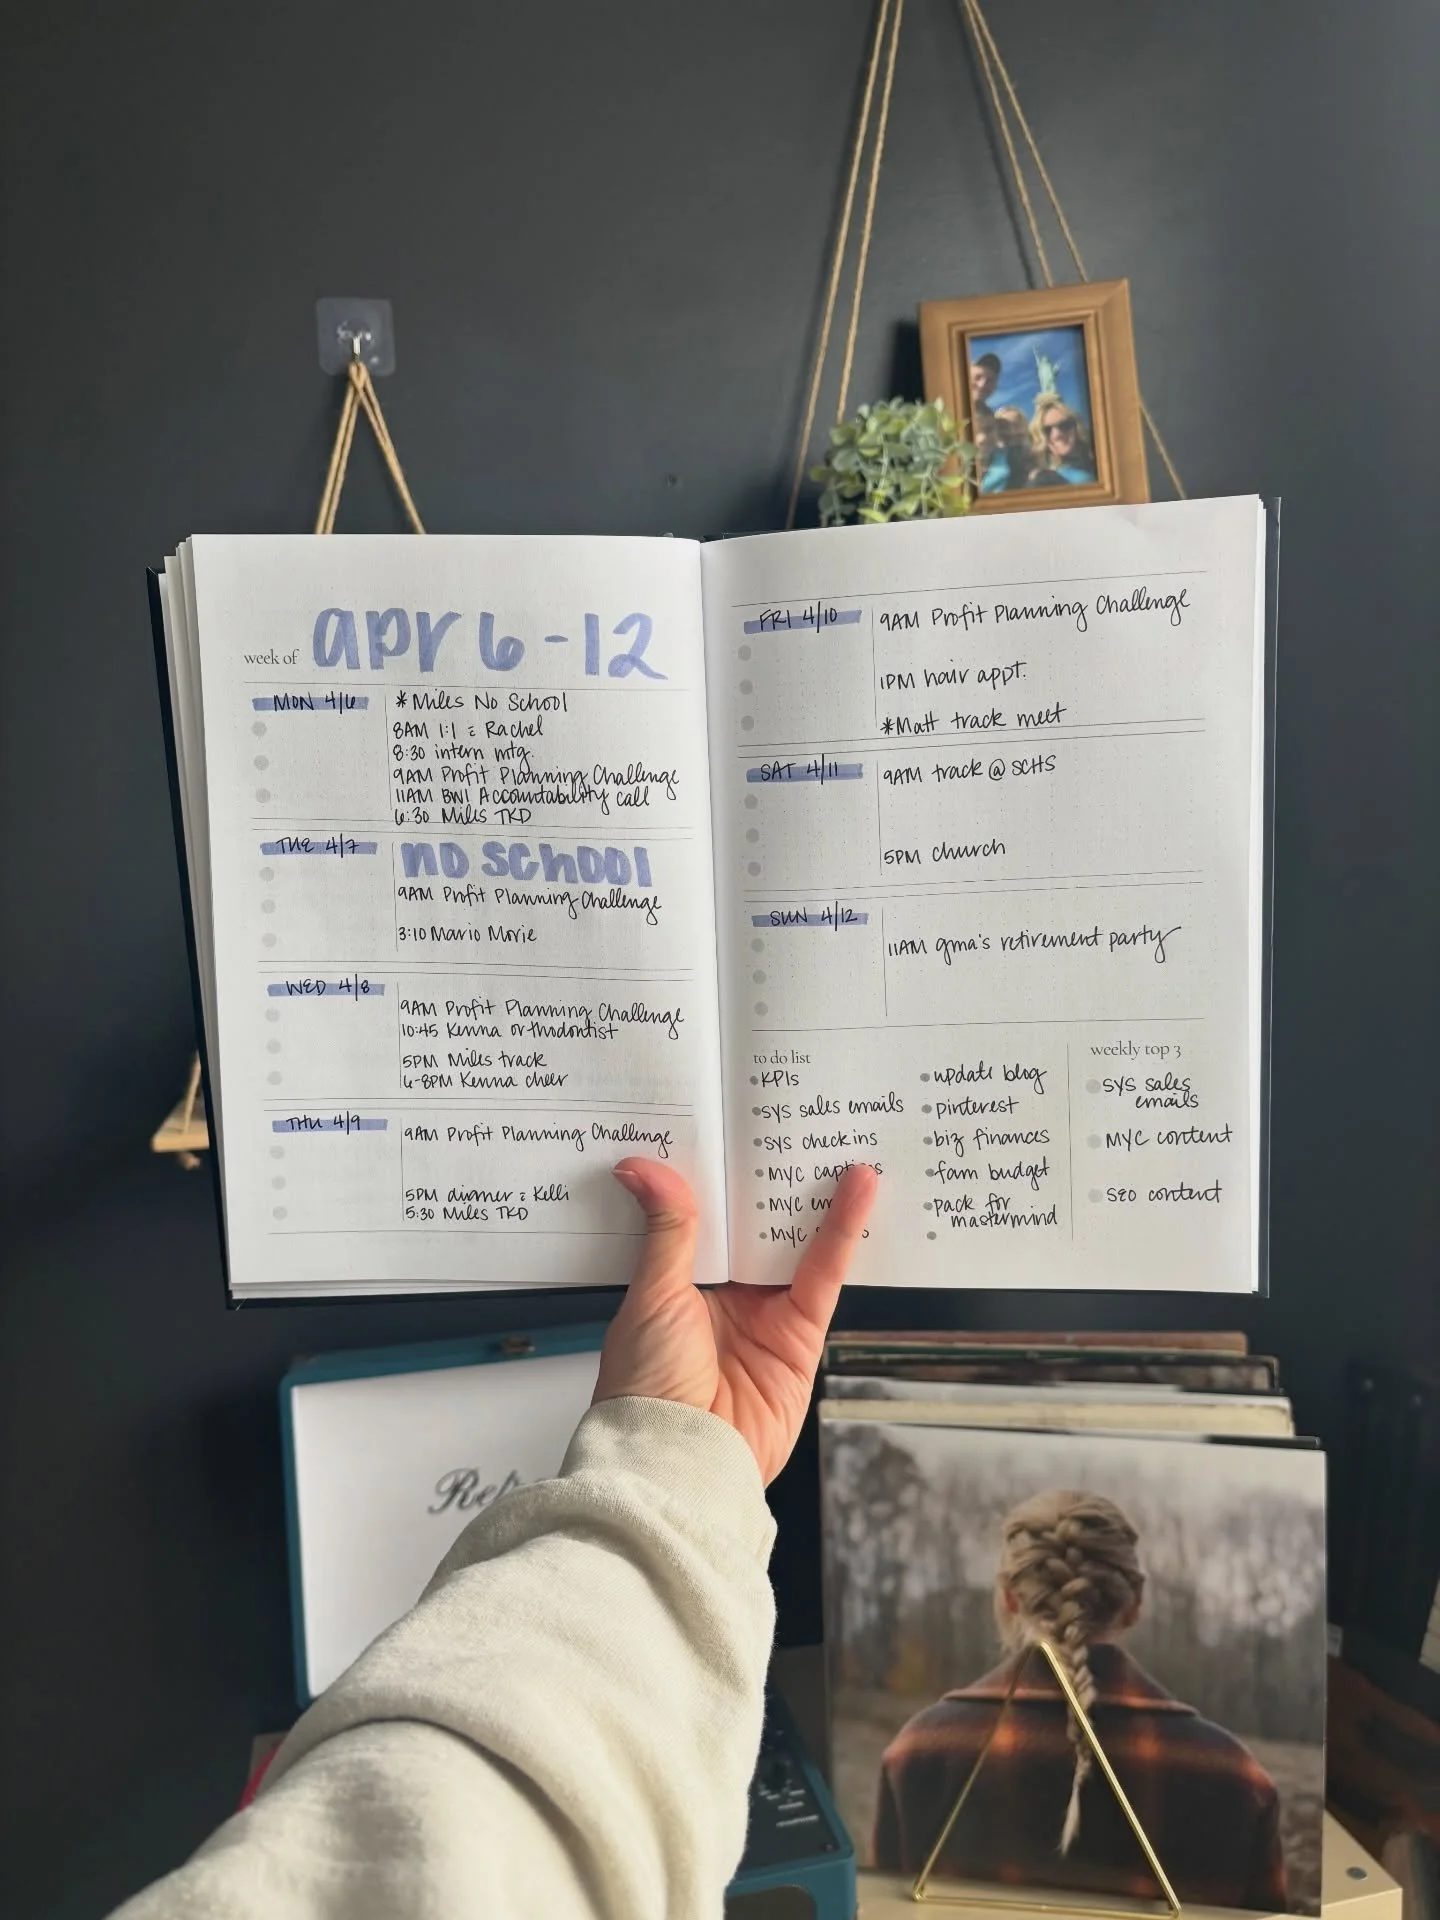 week of apr 6-12
MON 4/6
*Miles No School
8AM 1:1 c Rachel
8:30 intern mtg.
9AM Profit Planning Challenge
11AM BWI Accountability call
6:30 Miles TKD
TUE 4/7
NO SCHOOL
9AM Profit Planning Challenge
3:10 Mario Movie
WED 4/8
9AM Profit Planning Challenge
10:45 Kenna orthodontist
5PM Miles track
6-8PM Kenna cheer
THU 4/9
9AM Profit Planning Challenge
5PM dinner c Kelli
5:30 Miles TKD
FRI 4/10
9AM Profit Planning Challenge
1PM hair appt.
*Matt track meet
SAT 4/11
9AM track @ SCHS
5PM church
SUN 4/12
11AM gma's retirement party
to do list
KPIs
SYS sales emails
SYS checkins
MYC captions
MYC
MYC
update blog
pinterest
biz finances
fam budget
pack for
mastermind
weekly top 3
SYS sales
emails
MYC content
SEO content